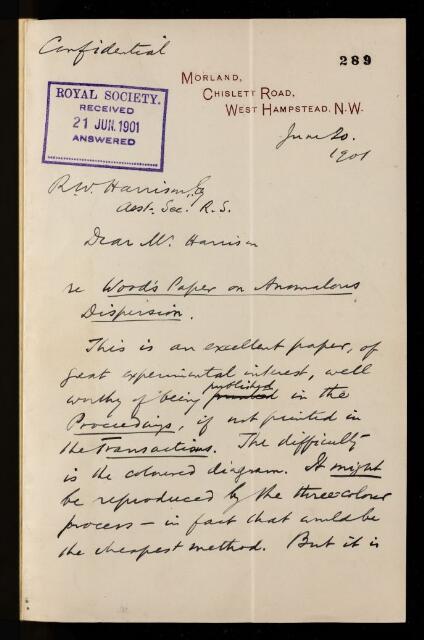 Confidential
289
MORLAND,
CHISLETT ROAD,
WEST HAMPSTEAD, N.W.
ROYAL SOCIETY.
RECEIVED
21 JUN. 1901
ANSWERED
June 20.
1901
R.W. Harrison, Esq
Asst. Sec. R.S.
Dear Mr. Harrison
re Wood's Paper on Anomalous
Dispersion.
This is an excellent paper, of
great experimental interest, well
published
worthy of being printed in the
Proceedings, if not printed in
the Transactions. The difficulty
is the coloured diagram. It might
be reproduced by the three colour
process – in fact that would be
the cheapest method. But it is